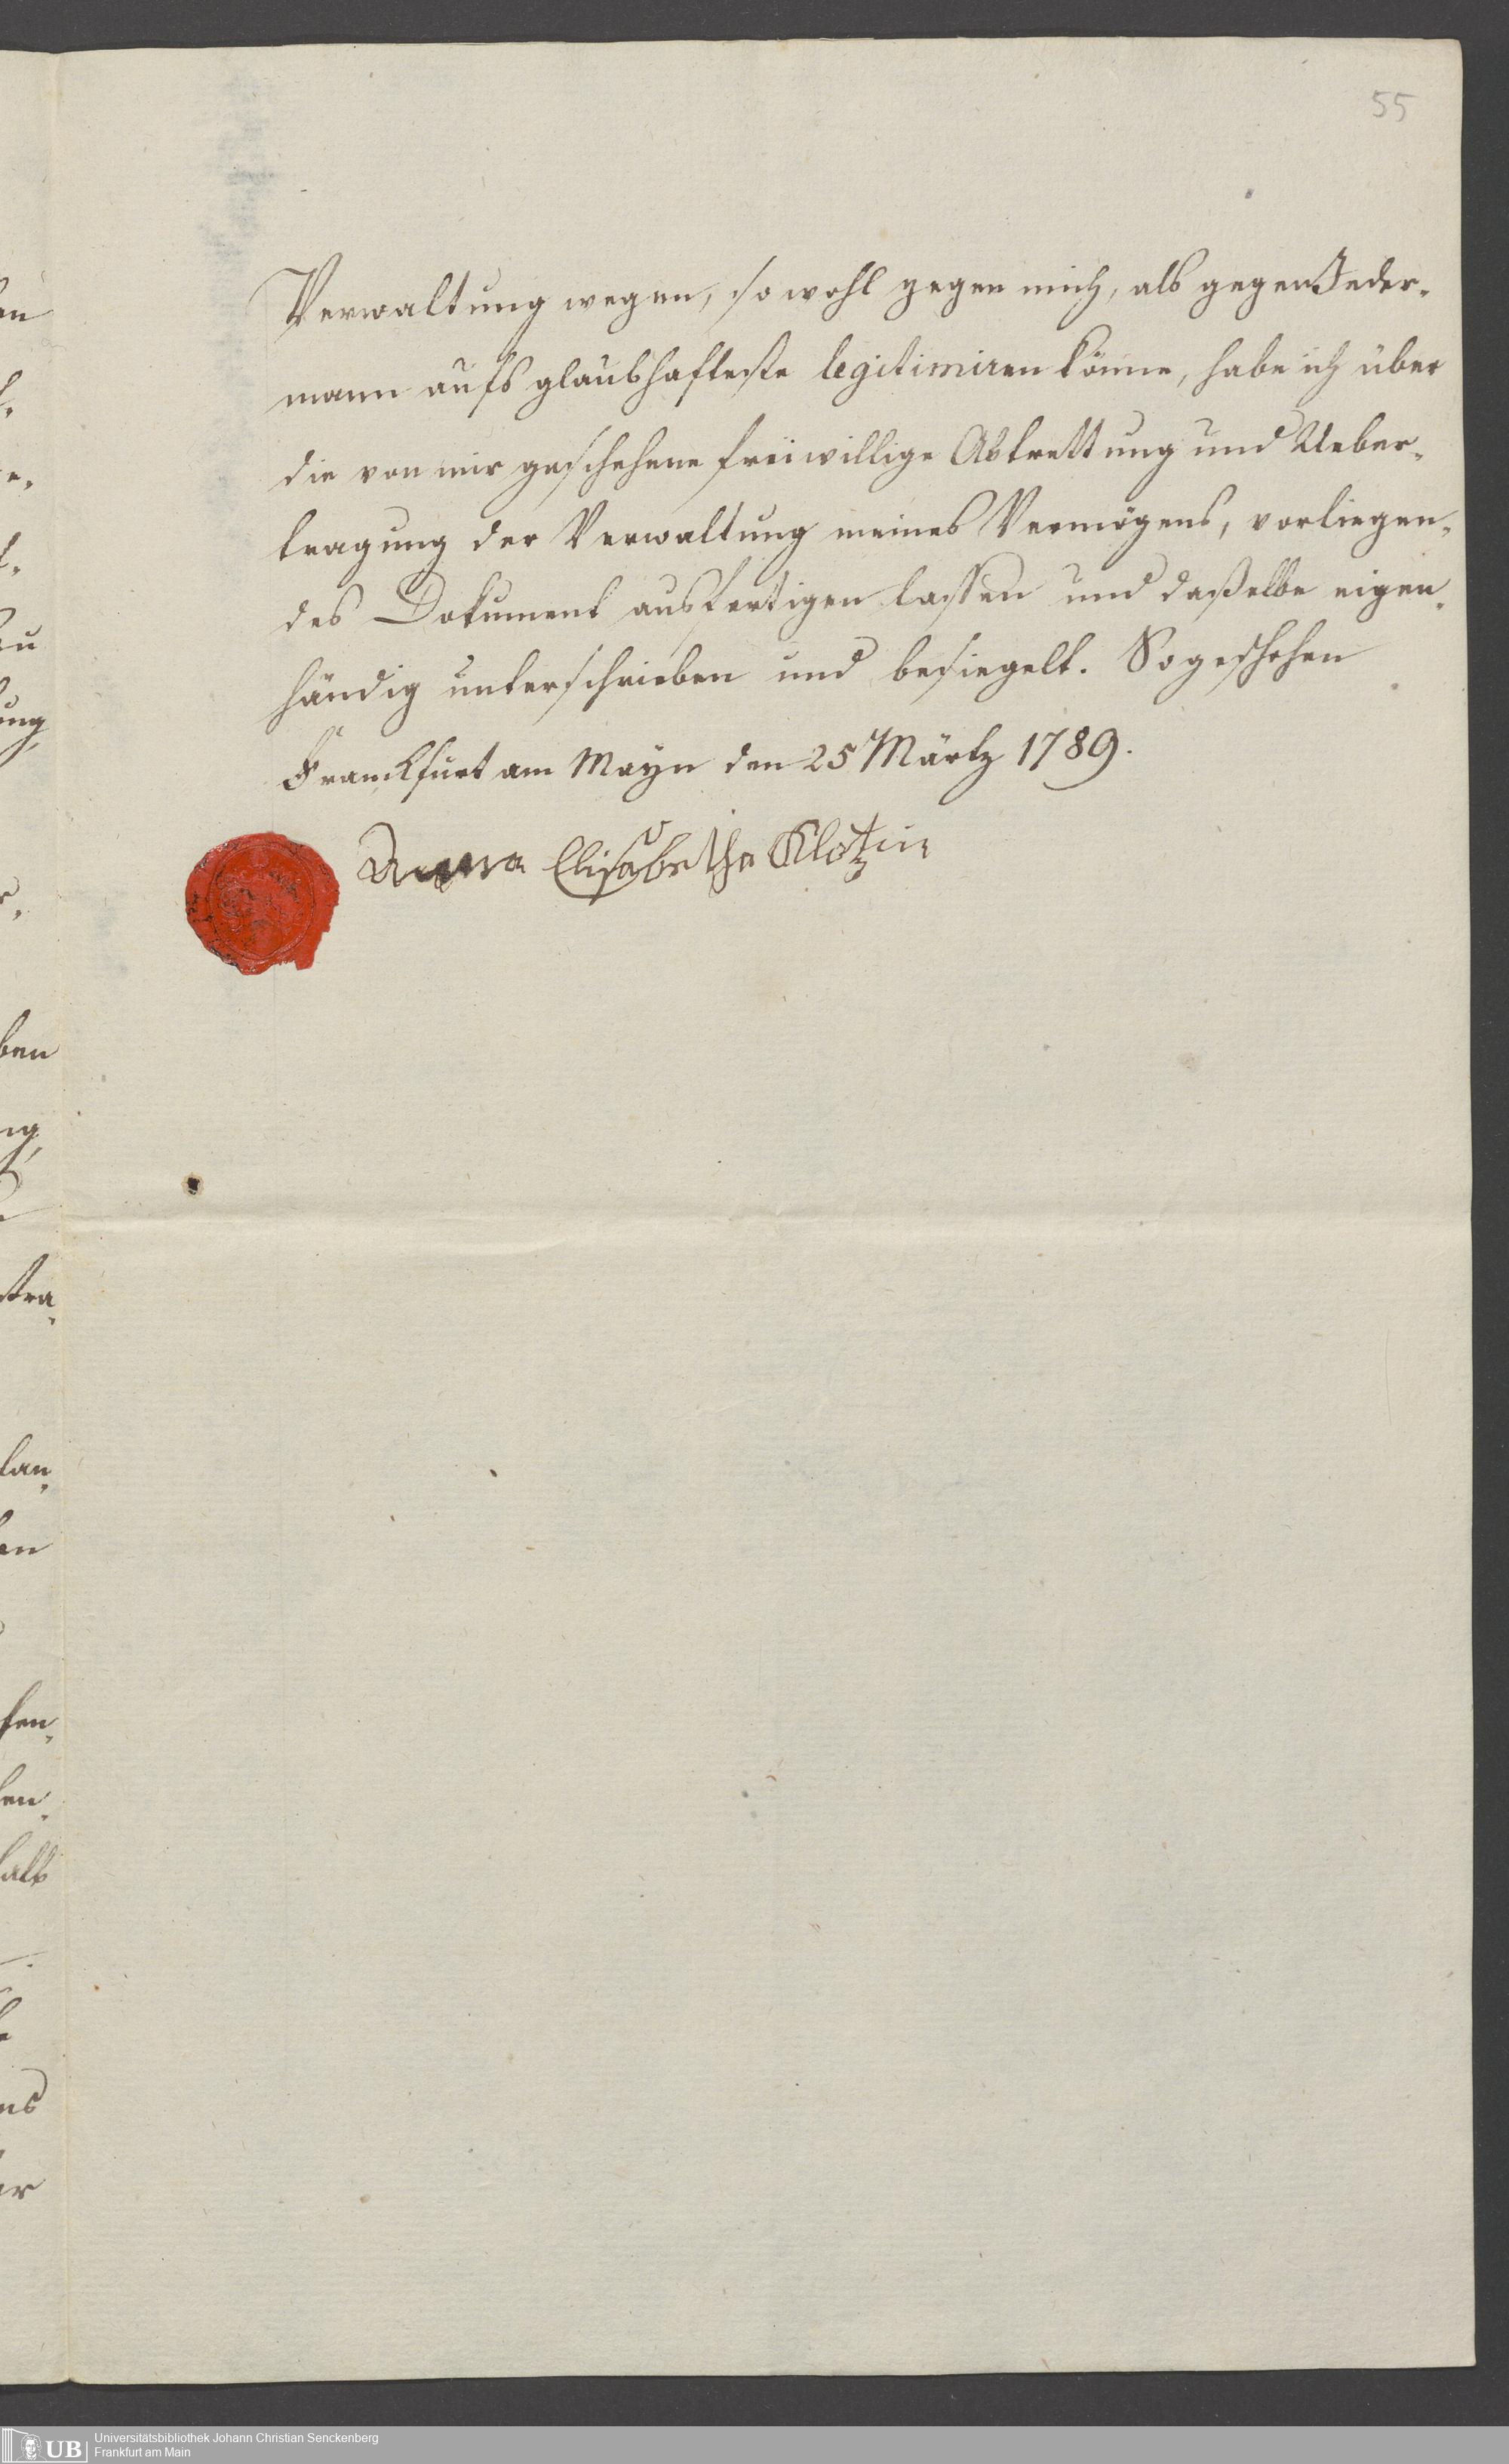 55
Verwaltung wegen, so wohl gegen mich, als gegen Jeder-
mann aufs glaubhafteste legitimiren könne, habe ich über
die von mir geschehene freiwillige Abtrettung und Ueber-
tragung der Verwaltung meines Vermögens, vorliegen-
des Dokument ausfertigen lassen und daßelbe eigen-
händig unterschrieben und besiegelt. So geschehen
Franckfurt am Mayn den 25 Märtz 1789.
Anna Elisabetha Klotzin
UB
Universitätsbibliothek Johann Christian Senckenberg
Frankfurt am Main